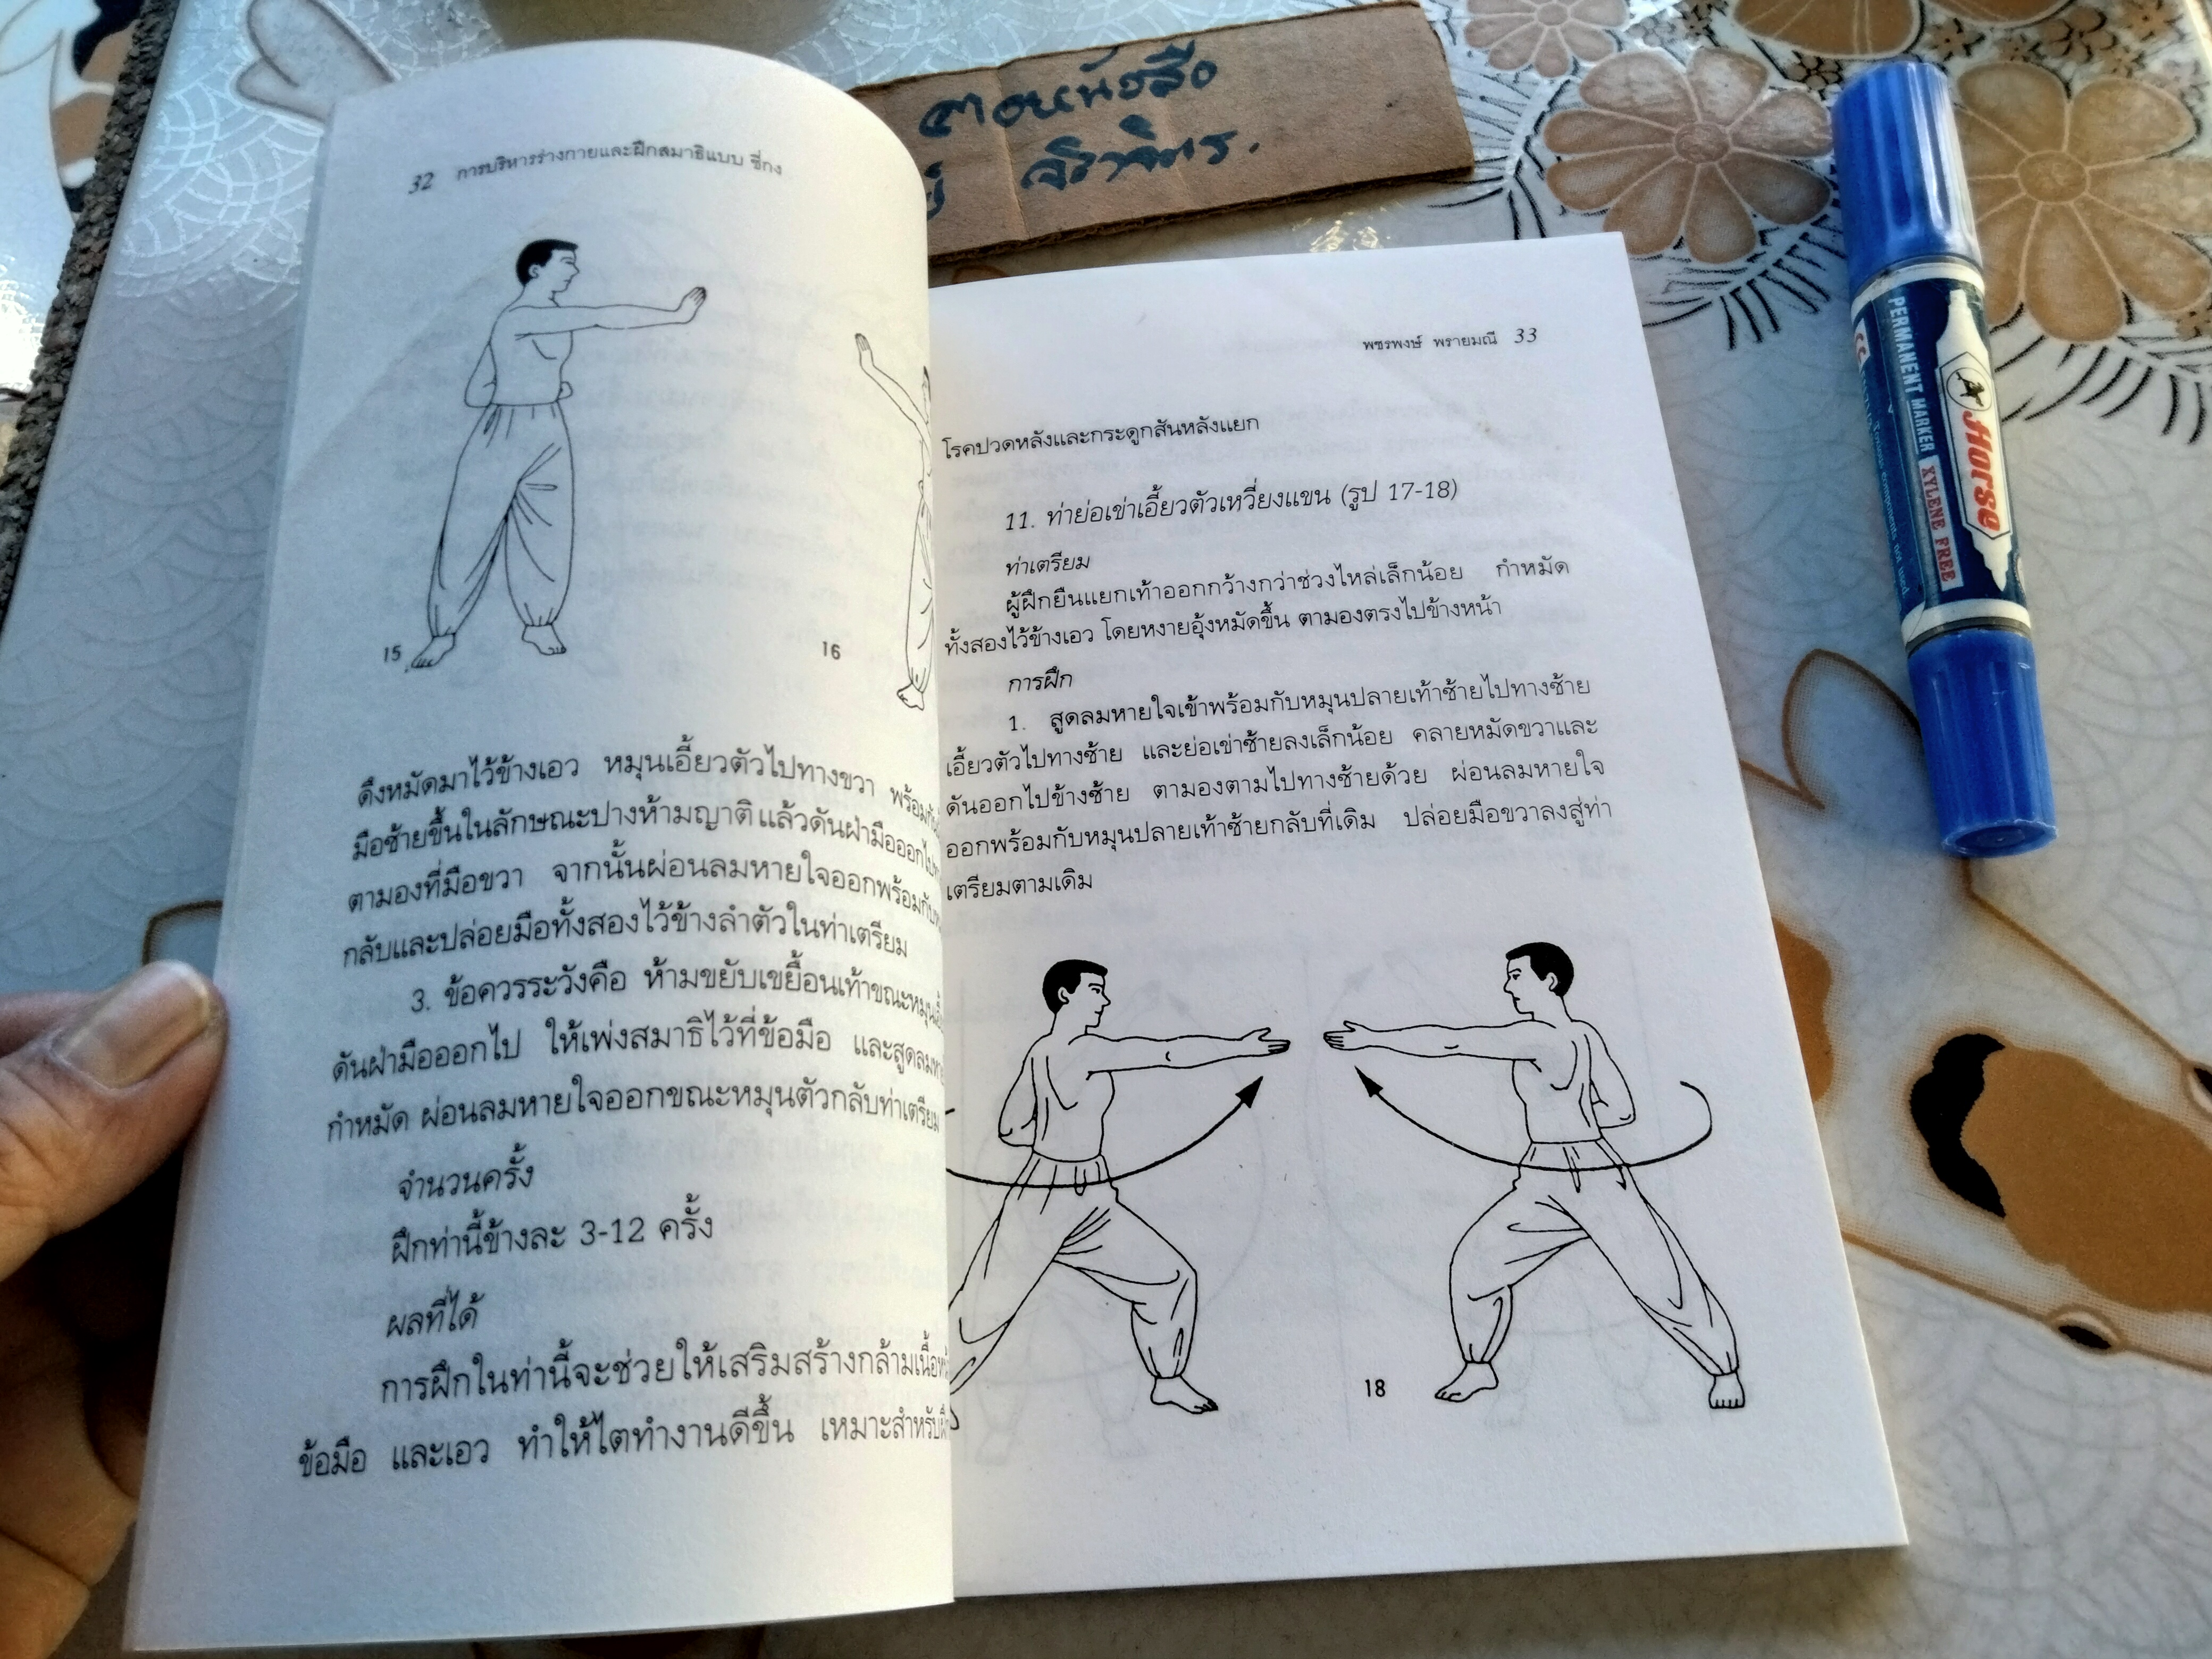 32 การบริหารร่างกายและฝึกสมาธิแบบ ชี่กง
15
16
ดึงหมัดมาไว้ข้างเอว หมุนเอี้ยวตัวไปทางขวา
มือซ้ายขึ้นในลักษณะปางห้ามญาติ แล้วดันฝ่ามือออกไป
ตามองที่มือขวา จากนั้นผ่อนลมหายใจออกพร้อมกับ
กลับและปล่อยมือทั้งสองไว้ข้างลำตัวในท่าเตรียม
3. ข้อควรระวังคือ ห้ามขยับเขยื้อนเท้าขณะหมุน
ดันฝ่ามือออกไป ให้เพ่งสมาธิไว้ที่ข้อมือ และสูดลม
กำหมัด ผ่อนลมหายใจออกขณะหมุนตัวกลับท่าเตรียม
จำนวนครั้ง
ฝึกท่านี้ข้างละ 3-12 ครั้ง
ผลที่ได้
การฝึกในท่านี้จะช่วยให้เสริมสร้างกล้ามเนื้อ
ข้อมือ และเอว ทำให้ไตทำงานดีขึ้น เหมาะสำหรับ
พชรพงษ์ พรายมณี 33
โรคปวดหลังและกระดูกสันหลังแยก
11. ท่าย่อเข่าเอี้ยวตัวเหวี่ยงแขน (รูป 17-18)
ท่าเตรียม
ผู้ฝึกยืนแยกเท้าออกกว้างกว่าช่วงไหล่เล็กน้อย กำหมัด
ทั้งสองไว้ข้างเอว โดยหงายอุ้งหมัดขึ้น ตามองตรงไปข้างหน้า
การฝึก
1. สูดลมหายใจเข้าพร้อมกับหมุนปลายเท้าซ้ายไปทางซ้าย
เอี้ยวตัวไปทางซ้าย และย่อเข่าซ้ายลงเล็กน้อย คลายหมัดขวาและ
ดันออกไปข้างซ้าย ตามองตามไปทางซ้ายด้วย ผ่อนลมหายใจ
ออกพร้อมกับหมุนปลายเท้าซ้ายกลับที่เดิม ปล่อยมือขวาลงสู่ท่า
เตรียมตามเดิม
18
Horse
PERMANENT MARKER XYLENE FREE